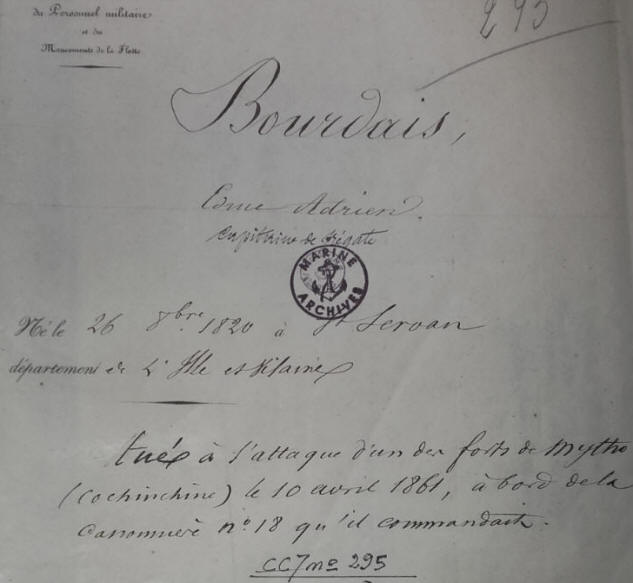 du Personnel militaire
et des
Mouvements de la Flotte
295
Bourdais,
Esme Adrien.
Capitaine de frégate
MARINE
ARCHIVES
Né le 26 8bre 1820 à St Servan
département de L'Ille et Vilaine
tué à l'attaque d'un des forts de Mytho
(Cochinchine) le 10 avril 1861, à bord de la
Canonnière no 18 qu'il commandait.
CC7 no 295